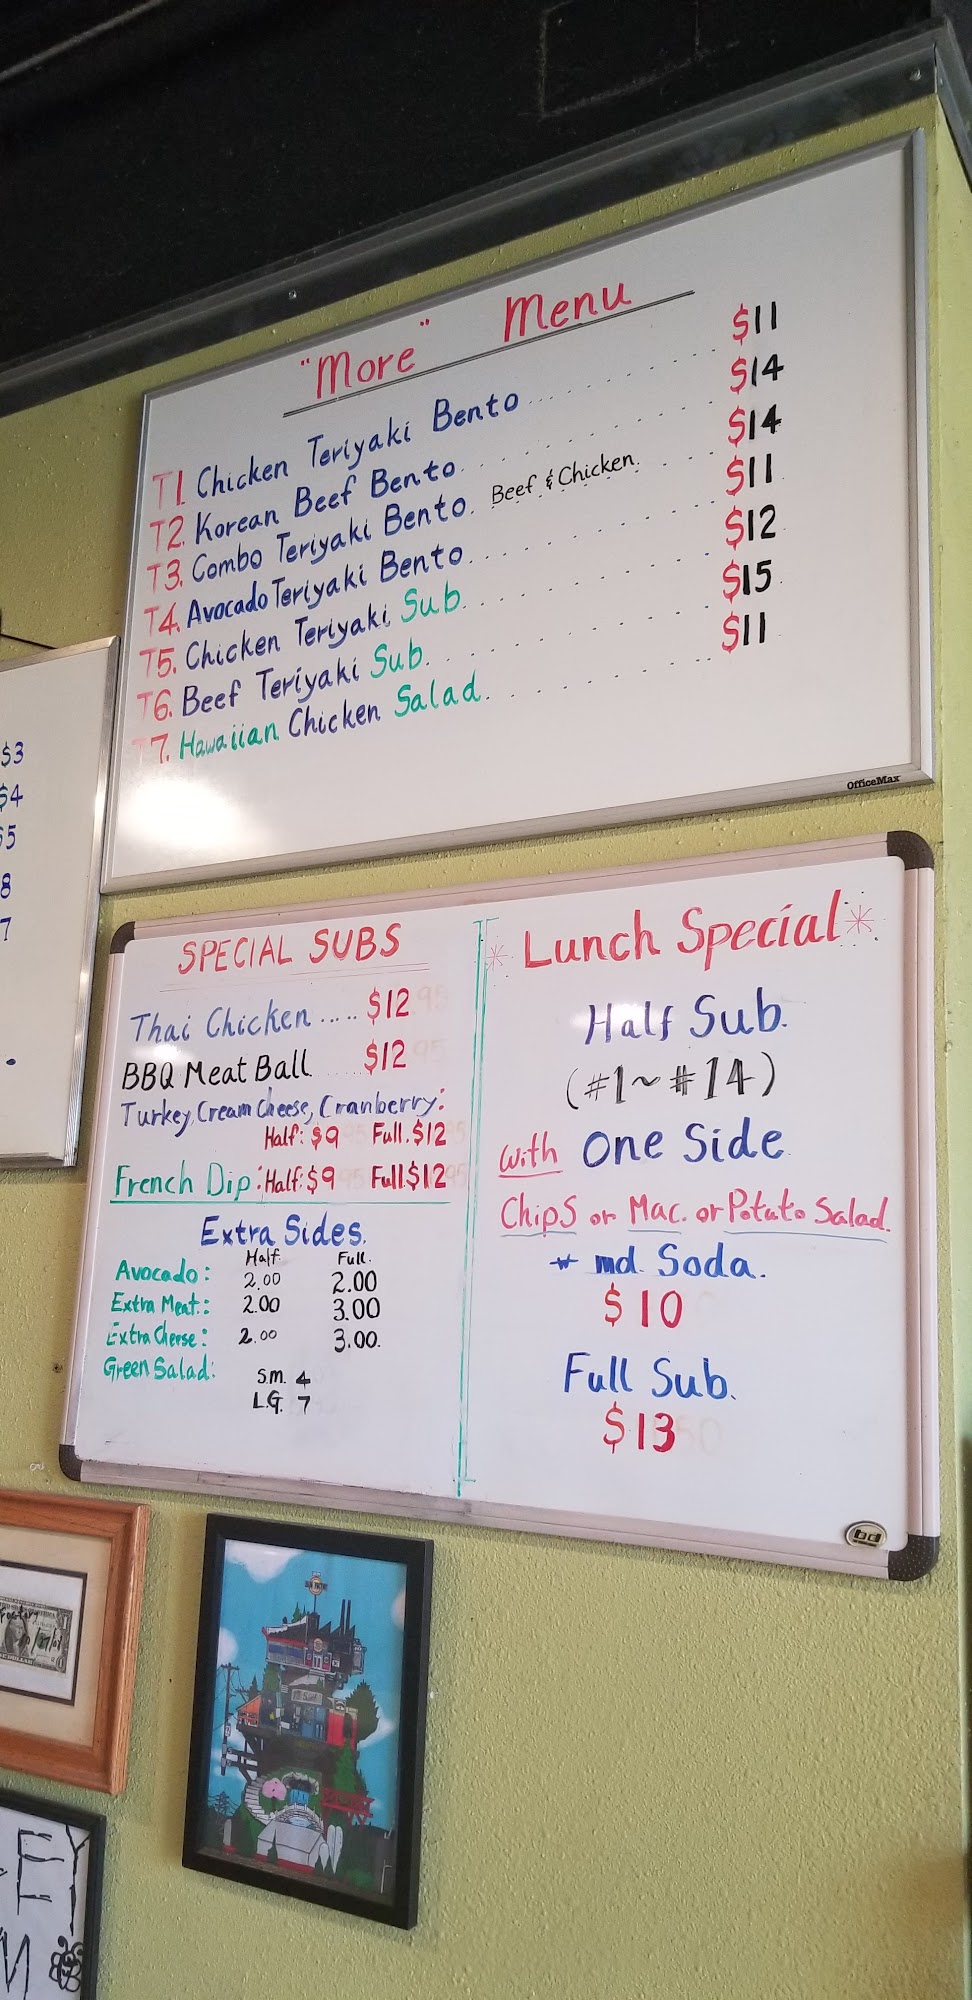 "More" Menu
T1. Chicken Teriyaki Bento.......... $11
T2. Korean Beef Bento.......... $14
T3. Combo Teriyaki Bento. Beef & Chicken..... $14
T4. Avocado Teriyaki Bento.......... $11
T5. Chicken Teriyaki Sub.......... $12
T6. Beef Teriyaki Sub.......... $15
T7. Hawaiian Chicken Salad.......... $11
OfficeMax
$3
$4
$5
8
7
SPECIAL SUBS
Thai Chicken ..... $12
BBQ Meat Ball ..... $12
Turkey, Cream Cheese, Cranberry:
Half: $9 Full. $12
French Dip: Half: $9 Full $12
Extra Sides.
Half Full.
Avocado: 2.00 2.00
Extra Meat.: 2.00 3.00
Extra Cheese: 2.00 3.00.
Green Salad:
S.M. 4
L.G. 7
* Lunch Special *
Half Sub.
(#1~#14)
with One Side
Chips or Mac. or Potato Salad.
+ md. Soda.
$10
Full Sub.
$13
bd